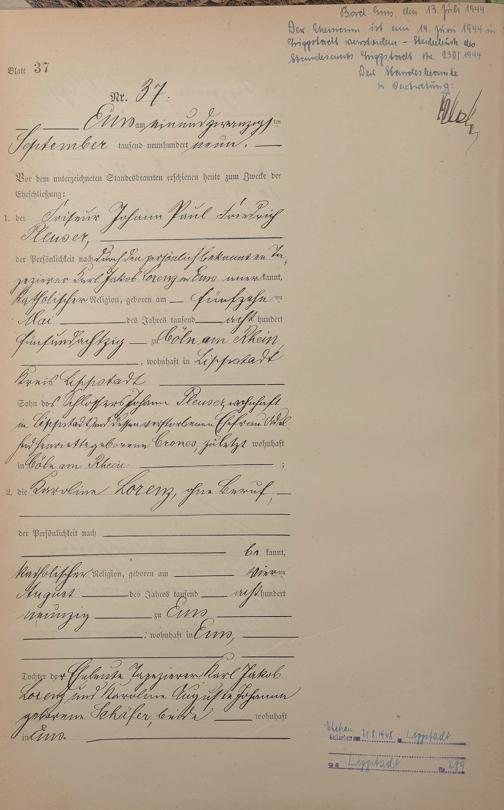 Bad Ems, den 13. Juli 1944
Der Ehemann ist am 14. Juni 1944 in
Lippstadt verstorben – Sterbebuch des
Standesamts Lippstadt Nr. 230/1944
Der Standesbeamte
in Vertretung:
Blatt 37
Nr. 37.
Ems am einundzwanzigsten
September tausend neunhundert neun.
Vor dem unterzeichneten Standesbeamten erschienen heute zum Zwecke der
Eheschließung:
1. der Friseur Johann Paul Friedrich
Pleuser,
der Persönlichkeit nach durch den persönlich bekannten Ta-
pezierer Karl Jakob Lorenz in Ems anerkannt,
katholischer Religion, geboren am fünfzehn ten
Mai des Jahres tausend acht hundert
fünfundachtzig zu Cöln am Rhein,
, wohnhaft in Lippstadt
Kreis Lippstadt
Sohn des Schlossers Johann Pleuser, wohnhaft
in Lippstadt und dessen verstorbenen Ehefrau
Henriette geborene Crones, zuletzt wohnhaft
in Cöln am Rhein ;
2. die Karoline Lorenz, ohne Beruf,
der Persönlichkeit nach
be kannt,
katholischer Religion, geboren am vier ten
August des Jahres tausend acht hundert
neunzig zu Ems
, wohnhaft in Ems,
Tochter der Eheleute Tapezierer Karl Jakob
Lorenz und Karoline Auguste Johanna
geborene Schäfer, beide wohnhaft
in Ems.
Lippstadt
Lippstadt Nr.